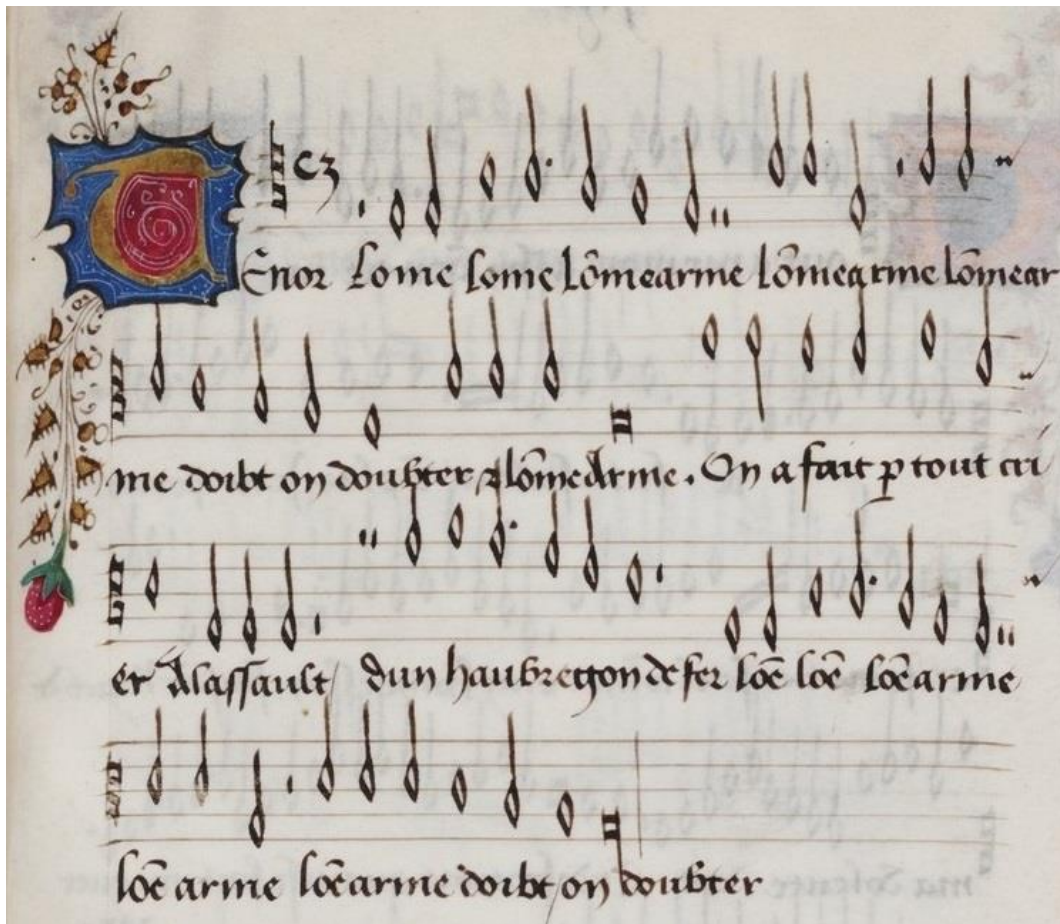 TEnor Lome Lome lõmearme lõmearme lõmear
me doibt on doubter lõmearme. On a fait p tout cri
er Alassault / dun haubregon de fer lõe lõe lõearme
lõe arme lõearme doibt on doubter